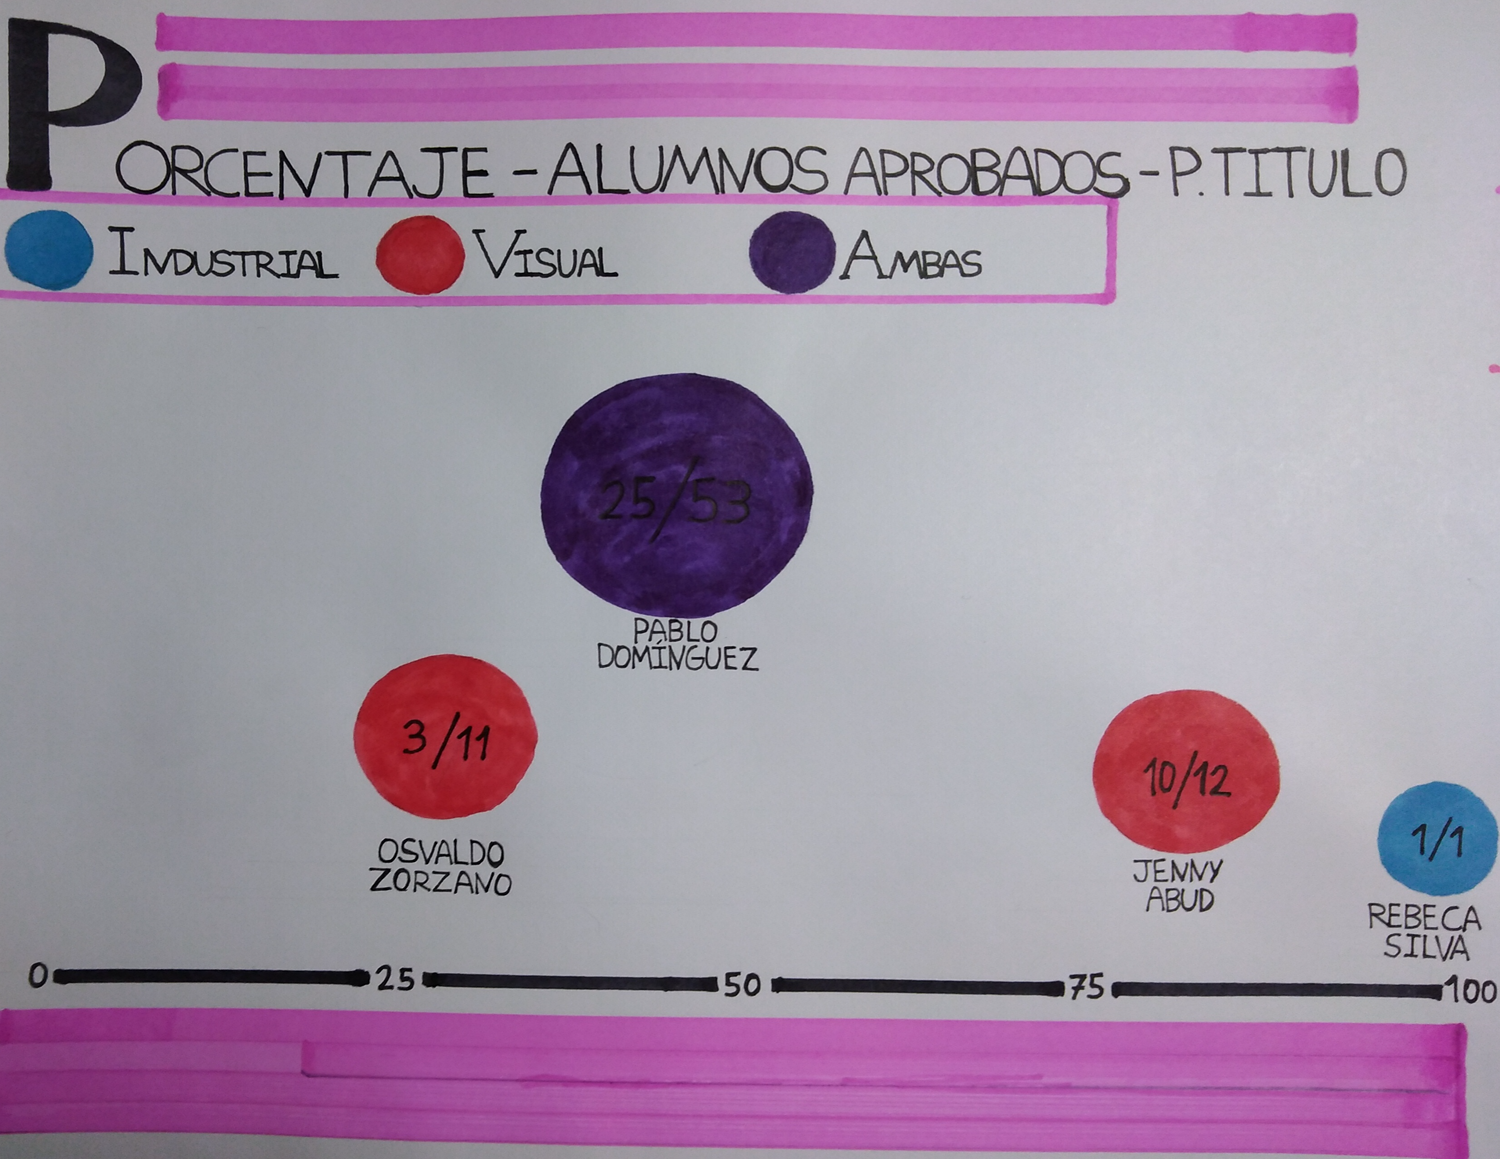 PORCENTAJE - ALUMNOS APROBADOS - P. TITULO
INDUSTRIAL VISUAL AMBAS
25/53
PABLO
DOMÍNGUEZ
3/11
OSVALDO
ZORZANO
10/12
JENNY
ABUD
1/1
REBECA
SILVA
0 25 50 75 100